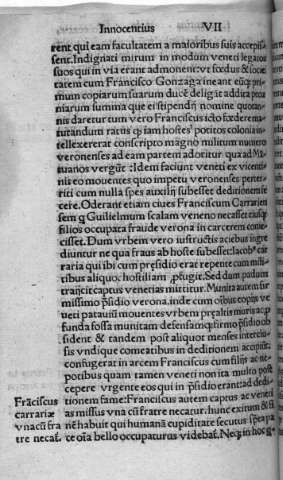 Innocentius VII
rent qui eam facultatem a maioribus suis accepis
sent. Indignati mirum in modum veneti legatos
suos qui in via erant admonent: vt fœdus & socie
tatem cum Francisco Gonzaga ineant eūq; pri
mum copiarum suarum ducē deligāt addita pecu
niarum summa que ei stipendij nomine quotan
nis daretur tum vero Franciscus icto fœdere ma
turandum ratus q̄ iam hostes potitos colonia in
tellexerat conscripto magno militum numero
veronenses ad eam partem adoritur qua ad Ma
tuanos vergūt: Idem faciunt veneti ex vicenti
nis eo mouentes quo impetu veronenses perter
riti cum nulla spes auxilij subesset deditionem fe
cere. Oderant etiam ciues Franciscum Carrarien
sem q̄ Guilielmum scalam veneno necasset eiusq;
filios occupata fraude verona in carcerem conie
cisset. Dum vrbem vero instructis aciebus ingre
diuntur ne qua fraus ab hoste subesset: Iacobꝰ car
raria qui ibi cum presidio erat repente cum mili
tibus aliquot hostiliam Sed dum padum
traijcit captus venetias mittitur. Munita autem fir
missimo p̄sidio verona, inde cum oībus copijs ve
neti patauiū mouentes vrbem p̄ altis muris ac p
funda fossa munitam defensamq; firmo p̄sidio ob
sident & tandem post aliquot menses interclu
sis vndique comeatibus in deditionem accipiūt
confugerat in arcem Franciscus cum filijs ac ne
potibus quam tamen veneti non ita multo post
cepere vrgente eos qui in p̄sidio erant ad dedi
Frāciscus tionem fame: Franciscus autem captus ac veneti
carrariæ as missus vna cū fratre necatur. hunc exitum &
vnacū fra nē habuit qui humanā cupiditate secutus spe
tre necaṫ. ce oīa bello occupaturus videbaṫ. Neq; in hoc